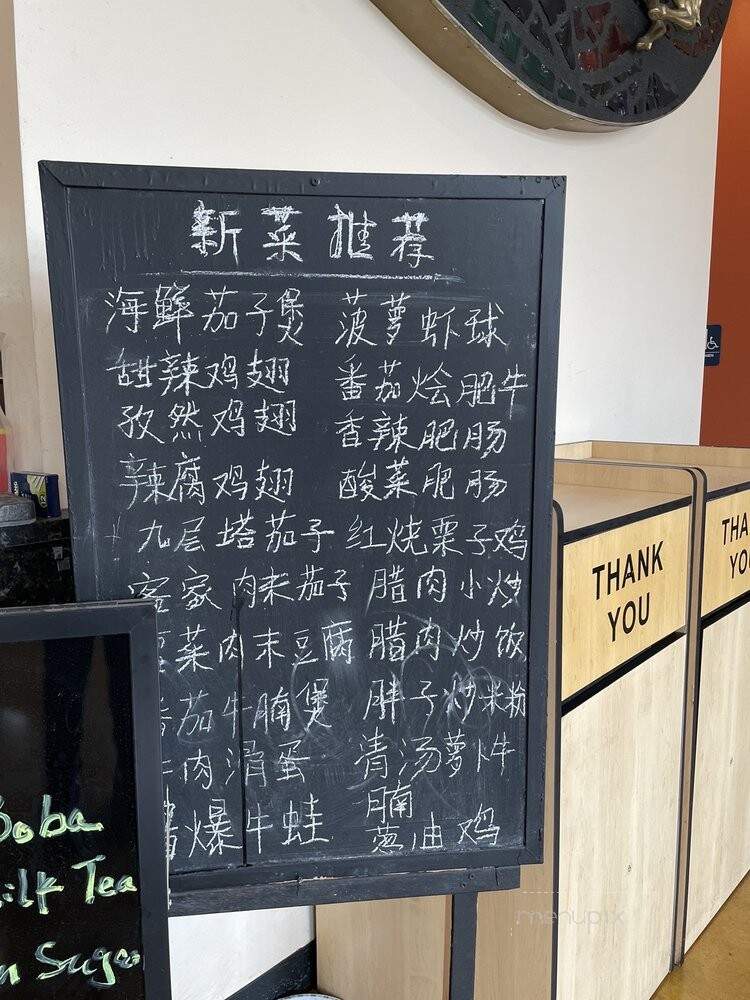 新菜推荐
海鲜茄子煲
甜辣鸡翅
孜然鸡翅
辣腐鸡翅
九层塔茄子
客家肉末茄子
菜肉末豆腐
番茄牛腩煲
牛肉滑蛋
爆牛蛙
菠萝虾球
番茄烩肥牛
香辣肥肠
酸菜肥肠
红烧栗子鸡
腊肉小炒
腊肉炒饭
胖子炒米粉
清汤萝卜牛
腩
葱油鸡
Boba
Milk Tea
Sugar
THANK
YOU
THA
YO
menupix